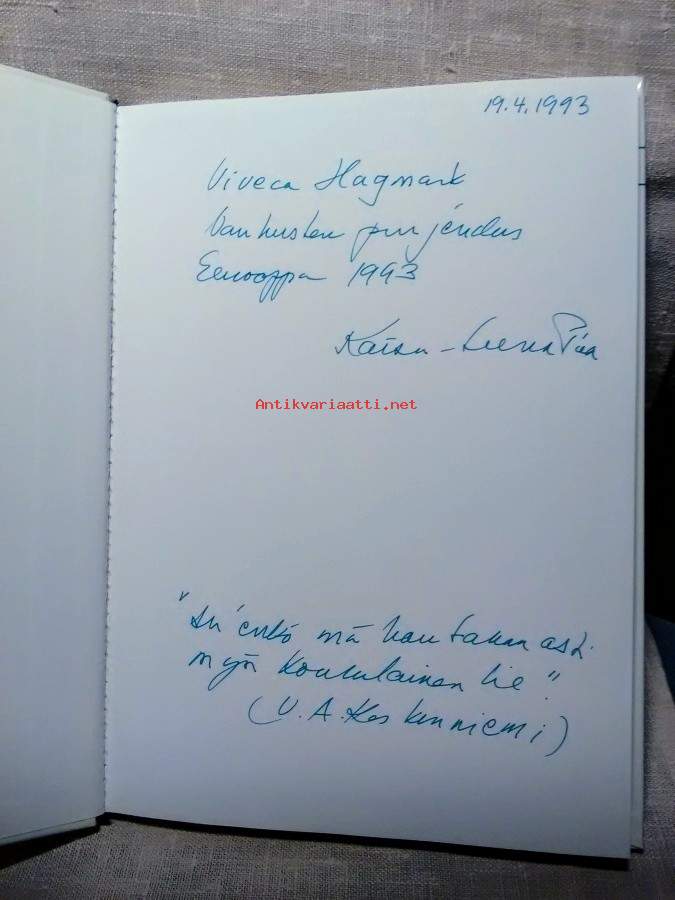 19.4.1993
Viveca Hagmark
Vanhusten purjendus
Eurooppa 1993
Kaisu-Leena
Antikvariaatti.net
mä hautahan asti
myös koululainen lie".
(V. A. Koskenniemi)